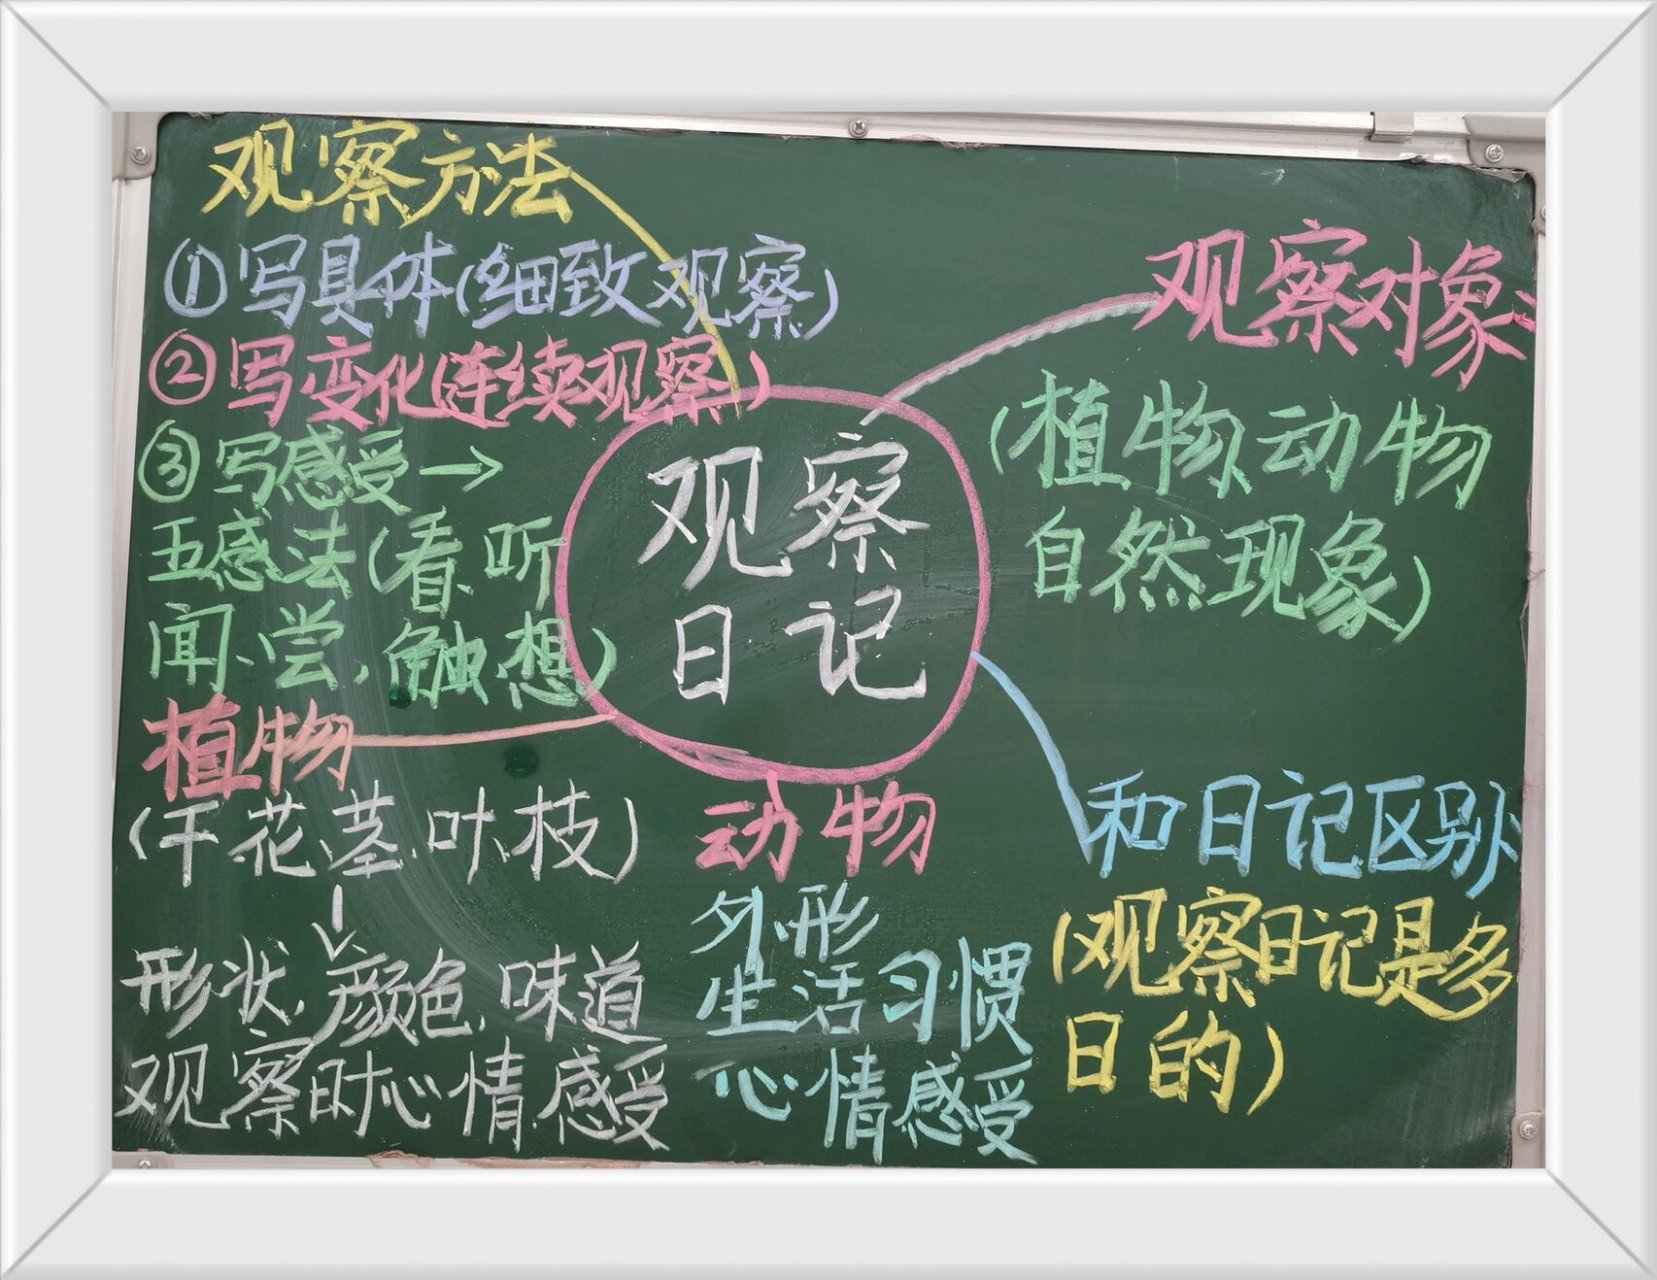 观察方法
①写具体(细致观察)
②写变化(连续观察)
③写感受→
五感法(看、听
闻、尝、触、想)
植物
(干、花、茎、叶、枝)
↓
形状、颜色、味道
观察时心情、感受
观察
日记
动物
外形
生活习惯
心情感受
观察对象:
(植物、动物
自然现象)
和日记区别
(观察日记是多
日的)